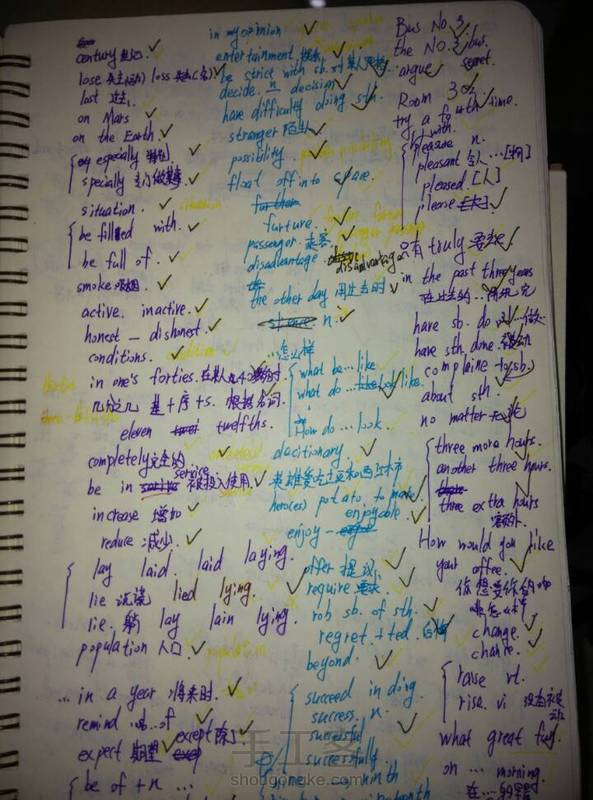 century 世纪
lose 失去(动) loss 失去(名)
last 过去
on Mars
on the Earth
especially 特别
specially 专门
situation
be filled with
be full of
smoke 吸烟
active. inactive.
honest — dishonest
conditions.
in one's forties. 在某人40
几分之几 基+序+s.
eleven twelfths.
completely 完全的
be in service 被投入使用
increase 增加
reduce 减少
lay laid laid laying.
lie 说谎 lied lying.
lie. 躺 lay lain lying.
population 人口
... in a year 将来时.
remind ... of
expect 期望 except 除了
be of + n ...
in my opinion
entertainment
be strict with sb. 对某人严格
decide. n. decision
have difficulty doing sth.
stranger 陌生人
possibility.
float off into space.
furture.
passenger. 乘客
disadvantage.
disadvantage
the other day 用过去时
n.
...怎么样
what be... like
what do... look like.
How do... look.
decitionary
英雄爱吃土豆和西红柿
hero(es) potato. tomato
enjoy — enjoyable
offer 提议
require 要求
rob sb. of sth.
regret + ted.
beyond.
succeed in doing.
success. n.
successful
successfully
ninth
Bus No. 3
the No. 3 bus.
argue
Room 302.
try a fourth time.
with.
please n.
pleasant 令人...[物]
pleased. [人]
please
只有 truly 要去e
in the past three years
在过去的...
have sb. do
have sth done.
complaine to sb.
about sth.
no matter 无论
three more hours.
another three hours.
three extra hours
额外.
How would you like
your coffee.
你想要你的咖
啡怎么样
change.
chance.
raise vt.
rise. vi
what great fun.
on ... morning.
在...的早晨
手工客
shougongke.com